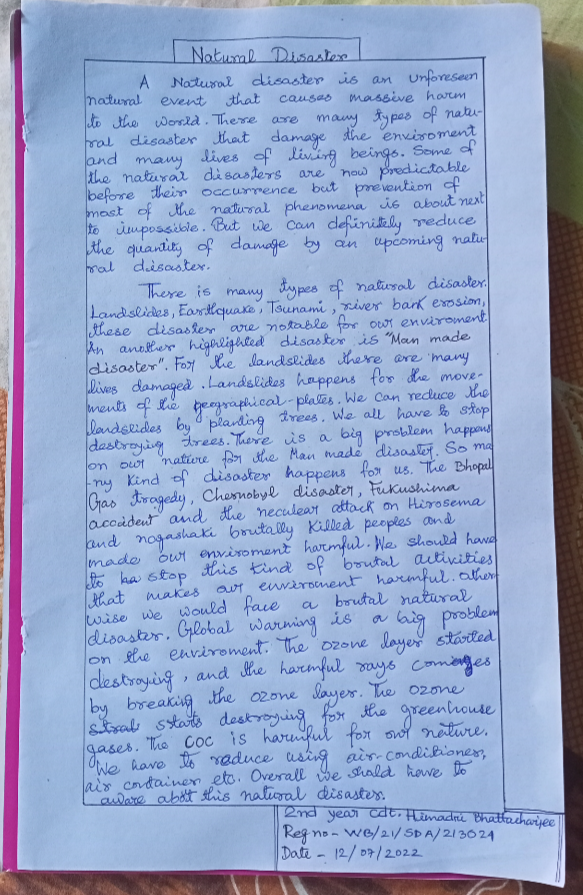 Natural Disaster
A Natural disaster is an unforeseen
natural event that causes massive harm
to the world. There are many types of natu-
ral disaster that damage the enviroment
and many lives of living beings. Some of
the natural disasters are now predictable
before their occurrence but prevention of
most of the natural phenomena is about next
to impossible. But we can definitely reduce
the quantity of damage by an upcoming natu-
ral disaster.
There is many types of natural disaster.
Landslides, Earthquake, Tsunami, river bank erosion,
these disaster are notable for our enviroment
An another highlighted disaster is "Man made
disaster". For the landslides there are many
lives damaged. Landslides happens for the move-
ments of the geographical-plates. We can reduce the
landslides by planting trees. We all have to stop
destroying trees. There is a big problem happens
on our nature for the Man made disaster. So ma
-ny kind of disaster happens for us. The Bhopal
Gas tragedy, Chernobyl disaster, Fukushima
accident and the neculear attack on Hirosema
and nogashaki brutally killed peoples and
made our enviroment harmful. We should have
to stop this kind of brutal activities
that makes our enviroment harmful. other
wise we would face a brutal natural
disaster. Global warning is a big problem
on the enviroment. The ozone layer started
destroying, and the harmful rays comes
by breaking the ozone layer. The ozone
starts destroying for the greenhouse
gases. The COC is harmful for our neture.
We have to reduce using air-conditioner,
air container etc. Overall we shold have to
aware abot this natural disaster.
2nd year cdt. Himadri Bhattacharjee
Reg no - WB/21/SDA/213021
Date - 12/07/2022